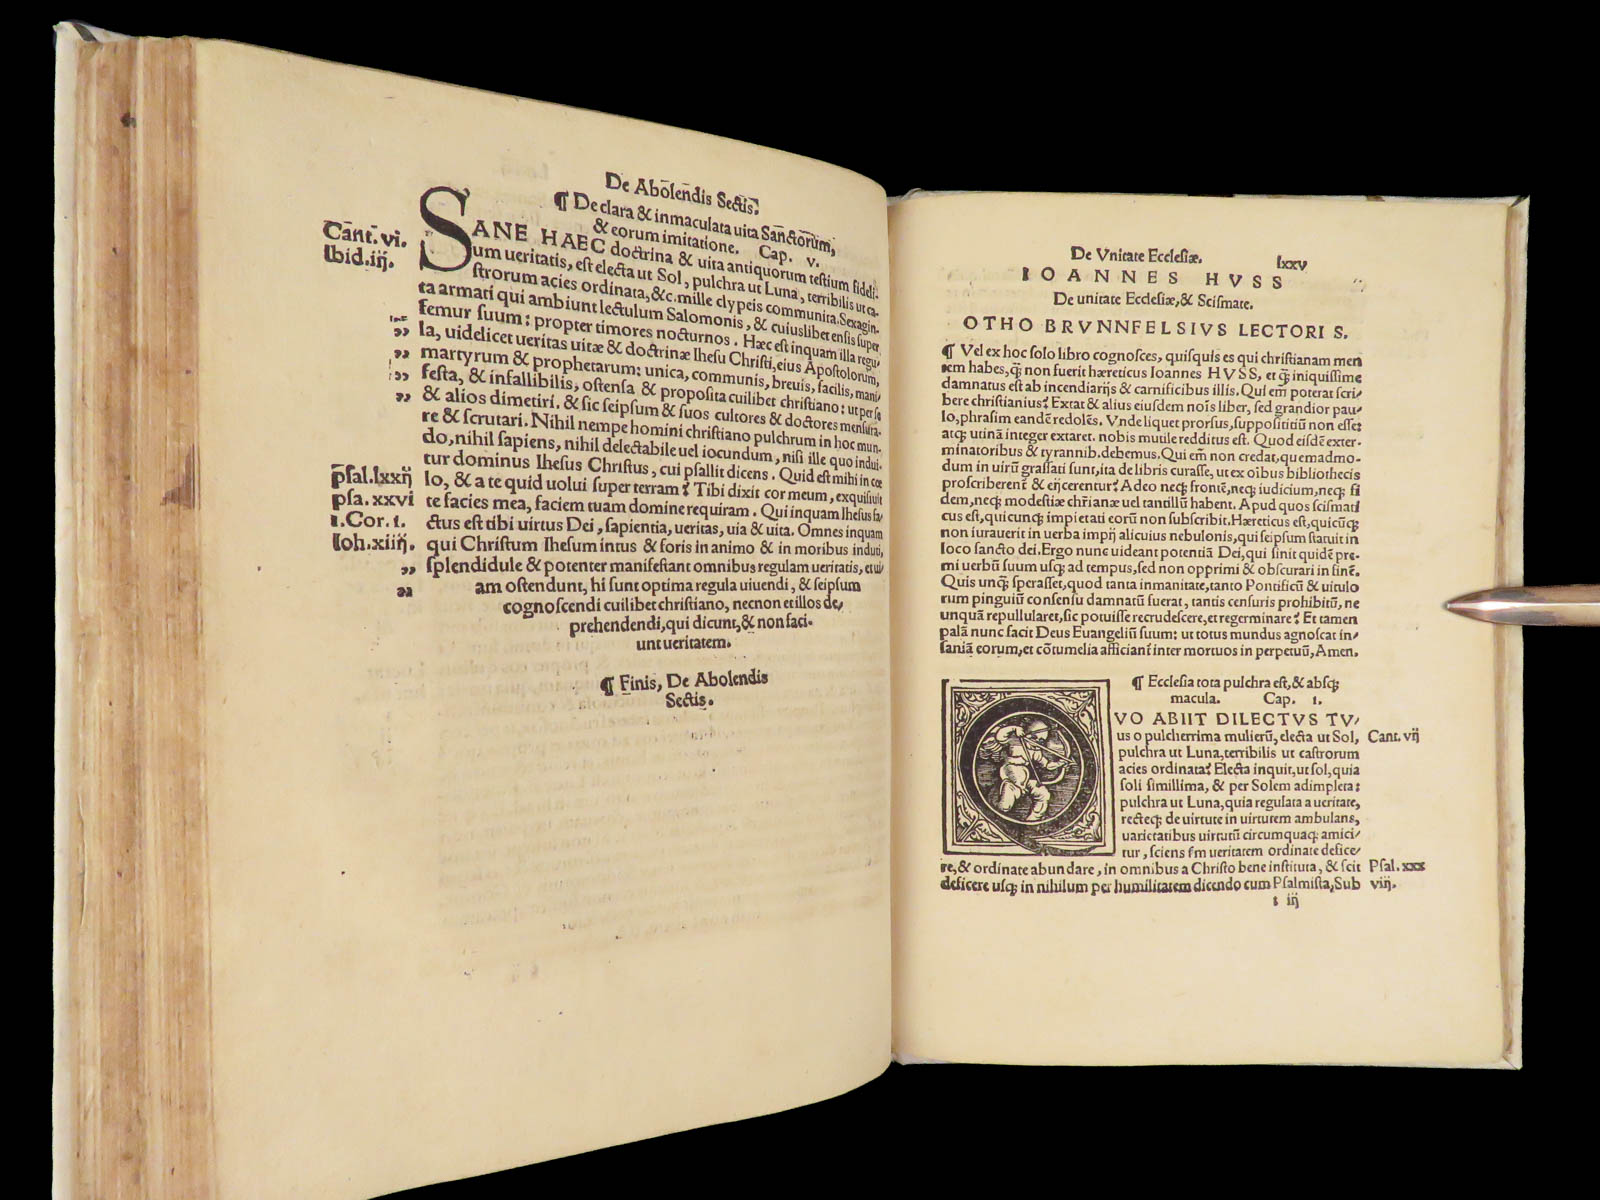 De Abolendis Sectis.
¶ De clara & inmaculata uita Sanctorum,
& eorum imitatione. Cap. v.
SANE HAEC doctrina & uita antiquorum testium fideli-
Cant̄. vi.
um ueritatis, est electa ut Sol, pulchra ut Luna, terribilis ut ca-
Ibid. iij.
strorum acies ordinata, &c. mille clypeis communita. Sexagin-
ta armati qui ambiunt lectulum Salomonis, & cuiuslibet ensis super
femur suum: propter timores nocturnos. Hæc est inquam illa regu-
la, uidelicet ueritas uitæ & doctrinæ Ihesu Christi, eius Apostolorum,
martyrum & prophetarum: unica, communis, breuis, facilis, mani-
festa, & infallibilis, ostensa & proposita cuilibet christiano: ut per se
& alios dimetiri, & sic seipsum & suos cultores & doctores mensura-
re & scrutari. Nihil nempe homini christiano pulchrum in hoc mun-
do, nihil sapiens, nihil delectabile uel iocundum, nisi ille quo indui-
tur dominus Ihesus Christus, cui psallit dicens. Quid est mihi in cœ
Psal. lxxij
lo, & a te quid uolui super terram? Tibi dixit cor meum, exquisiuit
psa. xxvi
te facies mea, faciem tuam domine requiram. Qui inquam Ihesus fa-
1. Cor. 1.
ctus est tibi virtus Dei, sapientia, ueritas, uia & uita. Omnes inquam
Ioh. xiiij.
qui Christum Ihesum intus & foris in animo & in moribus induti,
splendidule & potenter manifestant omnibus regulam ueritatis, et ui/
am ostendunt, hi sunt optima regula uiuendi, & seipsum
cognoscendi cuilibet christiano, necnon et illos de/
prehendendi, qui dicunt, & non faci-
unt ueritatem.
¶ Finis, De Abolendis
Sectis.
De Vnitate Ecclesiæ. lxxv
IOANNES HVSS
De unitate Ecclesiæ, & Scismate.
OTHO BRVNNFELSIVS LECTORI S.
¶ Vel ex hoc solo libro cognosces, quisquis es qui christianam men
tem habes, q̃ non fuerit hæreticus Ioannes HVSS, et q̃ iniquissime
damnatus est ab incendiarijs & carnificibus illis. Qui em̃ poterat scri/
bere christianius? Extat & alius eiusdem nois̃ liber, sed grandior pau/
lo, phrasim eandẽ redolẽs. Vnde liquet prorsus, supposititiũ non esse:
atq; utinã integer extaret. nobis mutile redditus est. Quod eisdẽ exter-
minatoribus & tyrannib. debemus. Qui em̃ non credat, quemadmo-
dum in uirũ grassati sunt, ita de libris curasse, ut ex oĩbus bibliothecis
proscriberent̃ & eijcerentur? Adeo neq; frontẽ, neq; iudicium, neq; fi
dem, neq; modestiæ chr̃ianæ uel tantillũ habent. Apud quos scismati
cus est, quicunq; impietati eorũ non subscribit. Hæreticus est, quicũq;
non iurauerit in uerba impij alicuius nebulonis, qui seipsum statuit in
loco sancto dei. Ergo nunc uideant potentiã Dei, qui sinit quidẽ pre-
mi uerbũ suum usq; ad tempus, sed non opprimi & obscurari in finẽ.
Quis unq̃ sperasset, quod tanta inmanitate, tanto Pontificũ & uitulo
rum pinguiũ consensu damnatũ fuerat, tantis censuris prohibitũ, ne
unquã repullularet, sic potuisse recrudescere, et regerminare? Et tamen
palã nunc facit Deus Euangeliũ suum: ut totus mundus agnoscat in/
saniã eorum, et cõtumelia afficiant̃ inter mortuos in perpetuũ, Amen.
¶ Ecclesia tota pulchra est, & absq;
macula. Cap. 1.
QVO ABIIT DILECTVS TV/
us o pulcherrima mulierũ, electa ut Sol, Cant. vij
pulchra ut Luna, terribilis ut castrorum
acies ordinata? Electa inquit, ut sol, quia
soli simillima, & per Solem adimpleta:
pulchra ut Luna, quia regulata a ueritate,
recteq; de uirtute in uirtutem ambulans,
uarietatibus uirtutũ circumquaq; amici/
tur, sciens s̃m ueritatem ordinate defice-
re, & ordinate abundare, in omnibus a Christo bene instituta, & scit Psal. xxx
deficere usq; in nihilum per humilitatem dicendo cum Psalmista, Sub viij.
t iij